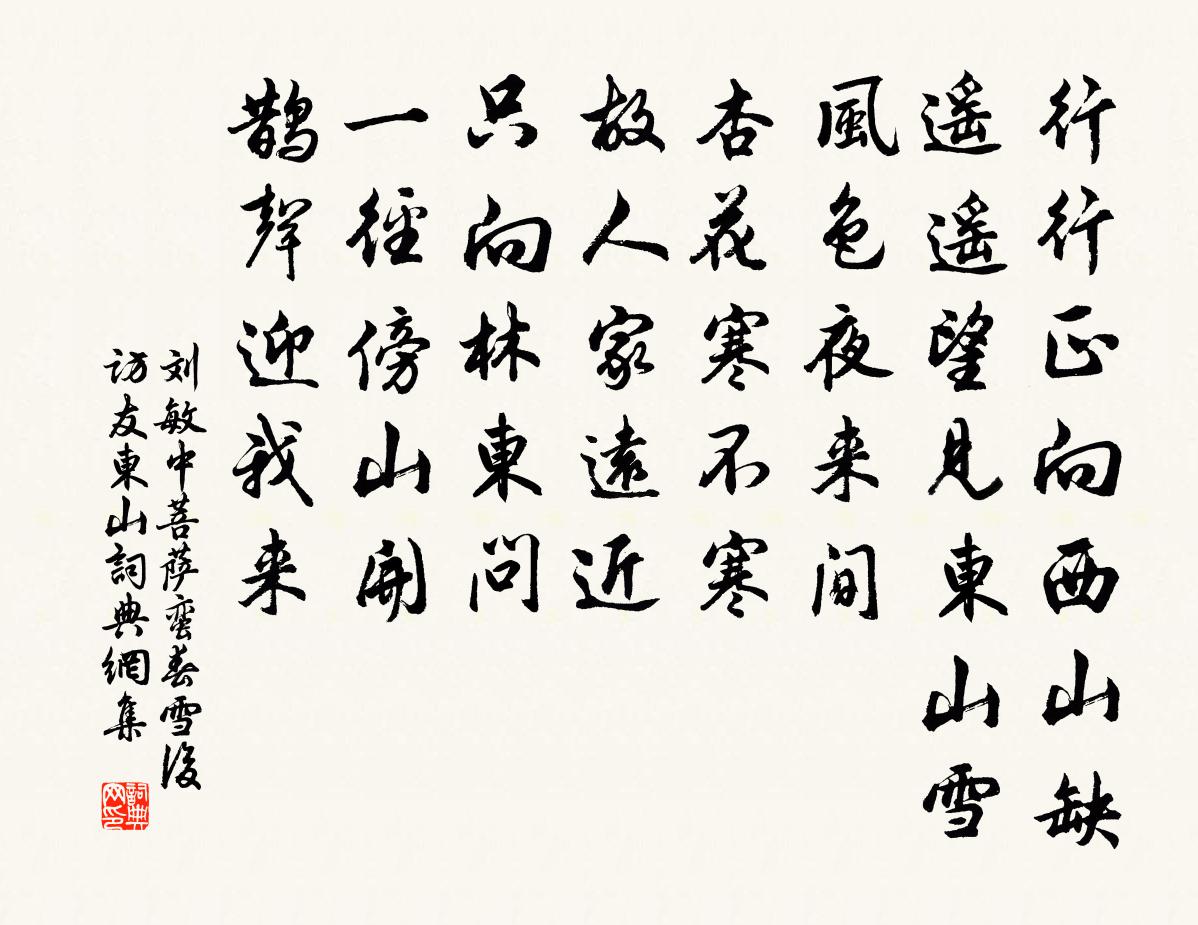 行行正向西山缺
遥遥望見東山雪
風色夜来间
杏花寒不寒
故人家遠近
只向林東问
一徑傍山開
鹊聲迎我来
刘敏中菩萨蛮春雪後
访友東山詞典網集
詞典网印